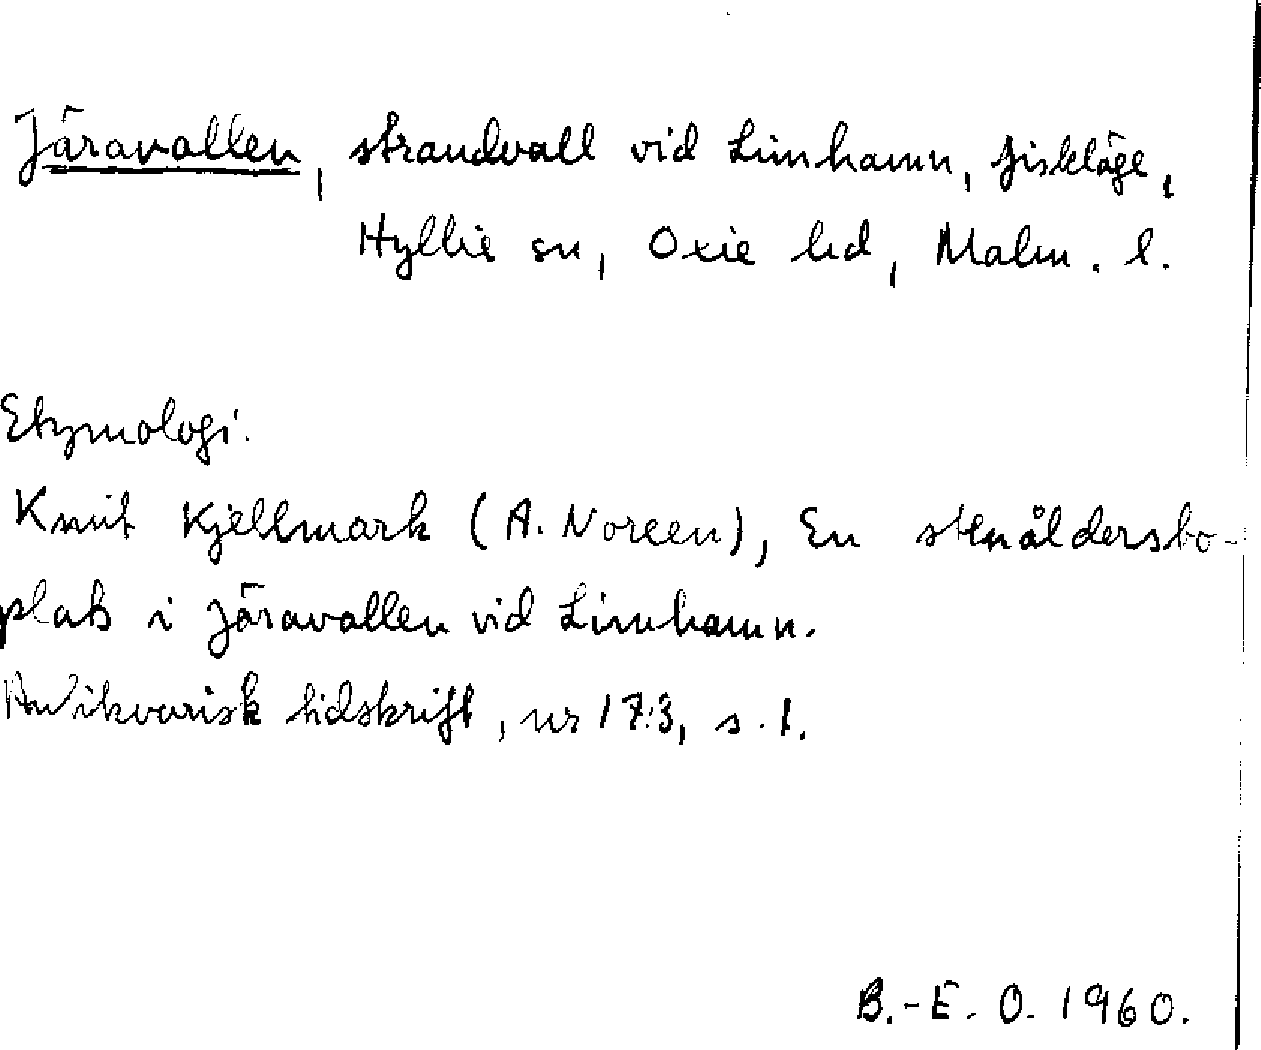 Järavallen, strandvall vid Limhamn, fiskläge,
Hyllie sn, Oxie hd, Malm. l.
Etymologi.
Knut Kjellmark (A. Noreen), En stenåldersbo-
plats i Järavallen vid Limhamn.
Antikvarisk tidskrift, nr 17:3, s. 1.
B.-E. O. 1960.